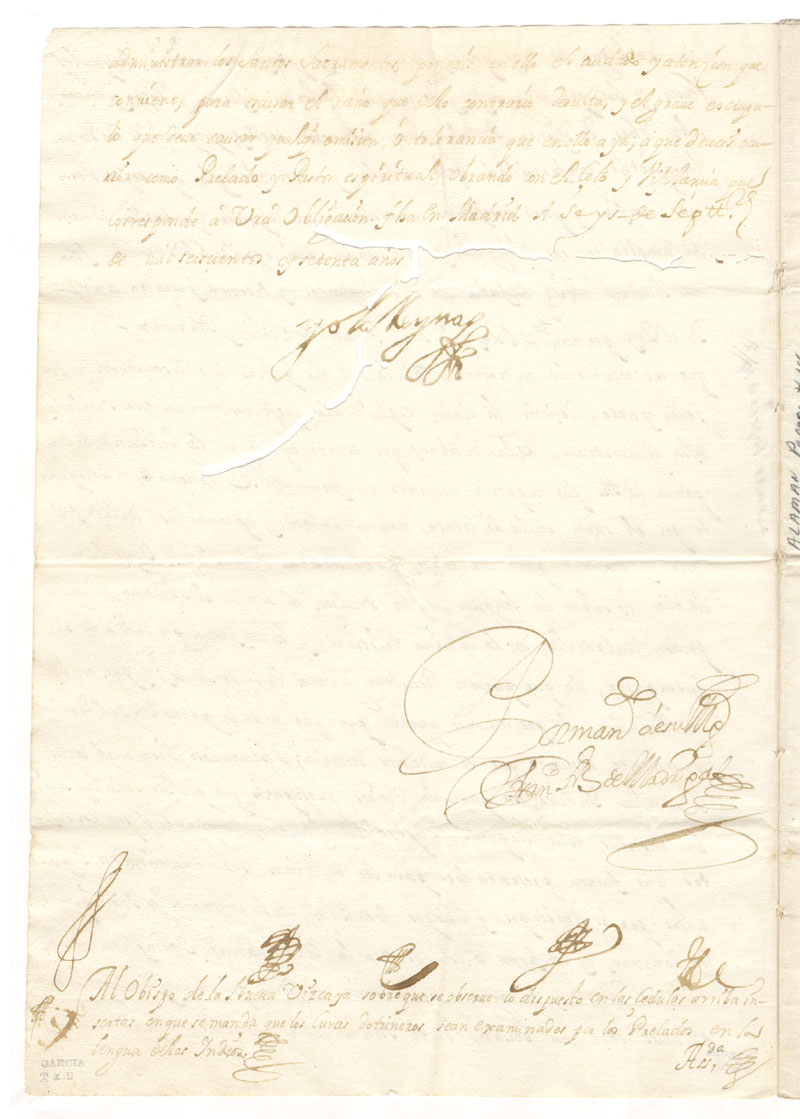 administrar los Santos Sacramentos, pongais en ello el cuidado y atenzion que
conviene, para escusar el daño que delo contrario resulta, y el grave escrupu-
lo que deve causar qualqr. omision, ó tolerancia que en ello aya, a que deveis ocu-
rrir como Prelado y Pastor espiritual, obrando con el Çelo y Vigilancia que
corresponde á Vrã Obligaçion, fha en Madrid A seys de Septt.re
de mil seiscientos y setenta años
yo la Reyna
Por mand.o de su Mg.d
Fran.co de Madrigal
Al Obispo de la Nueva Vizcaya sobre que se observe lo dispuesto en las Cedulas arriba in-
sertas en que se manda que los Curas dotrineros sean examinados por los Prelados en la
lengua de los Indios.
GARCIA
T x U
ALAMAN Papers